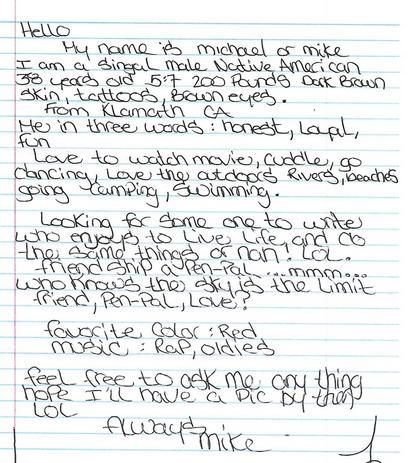 Hello
My name is michael or mike
I am a singal male Native American
38 years old 5:7 200 Pounds Dark Brown
Skin, tattoos, Brown eyes.
From Klamath CA
Me in three words : honest, Loyal,
fun
Love to watch movie, cuddle, go
dancing, Love the outdoors Rivers, beaches
going camping, swimming.
Looking for some one to write
who enjoys to Live Life, and do
the same things or non! LOL.
friendship a Pen-Pal ...mmm...
who knows the sky is the Limit
friend, Pen-Pal, Love?
favorite Color : Red
music : Rap, oldies
feel free to ask me any thing
hope I'll have a Pic by then
LOL
Always
mike